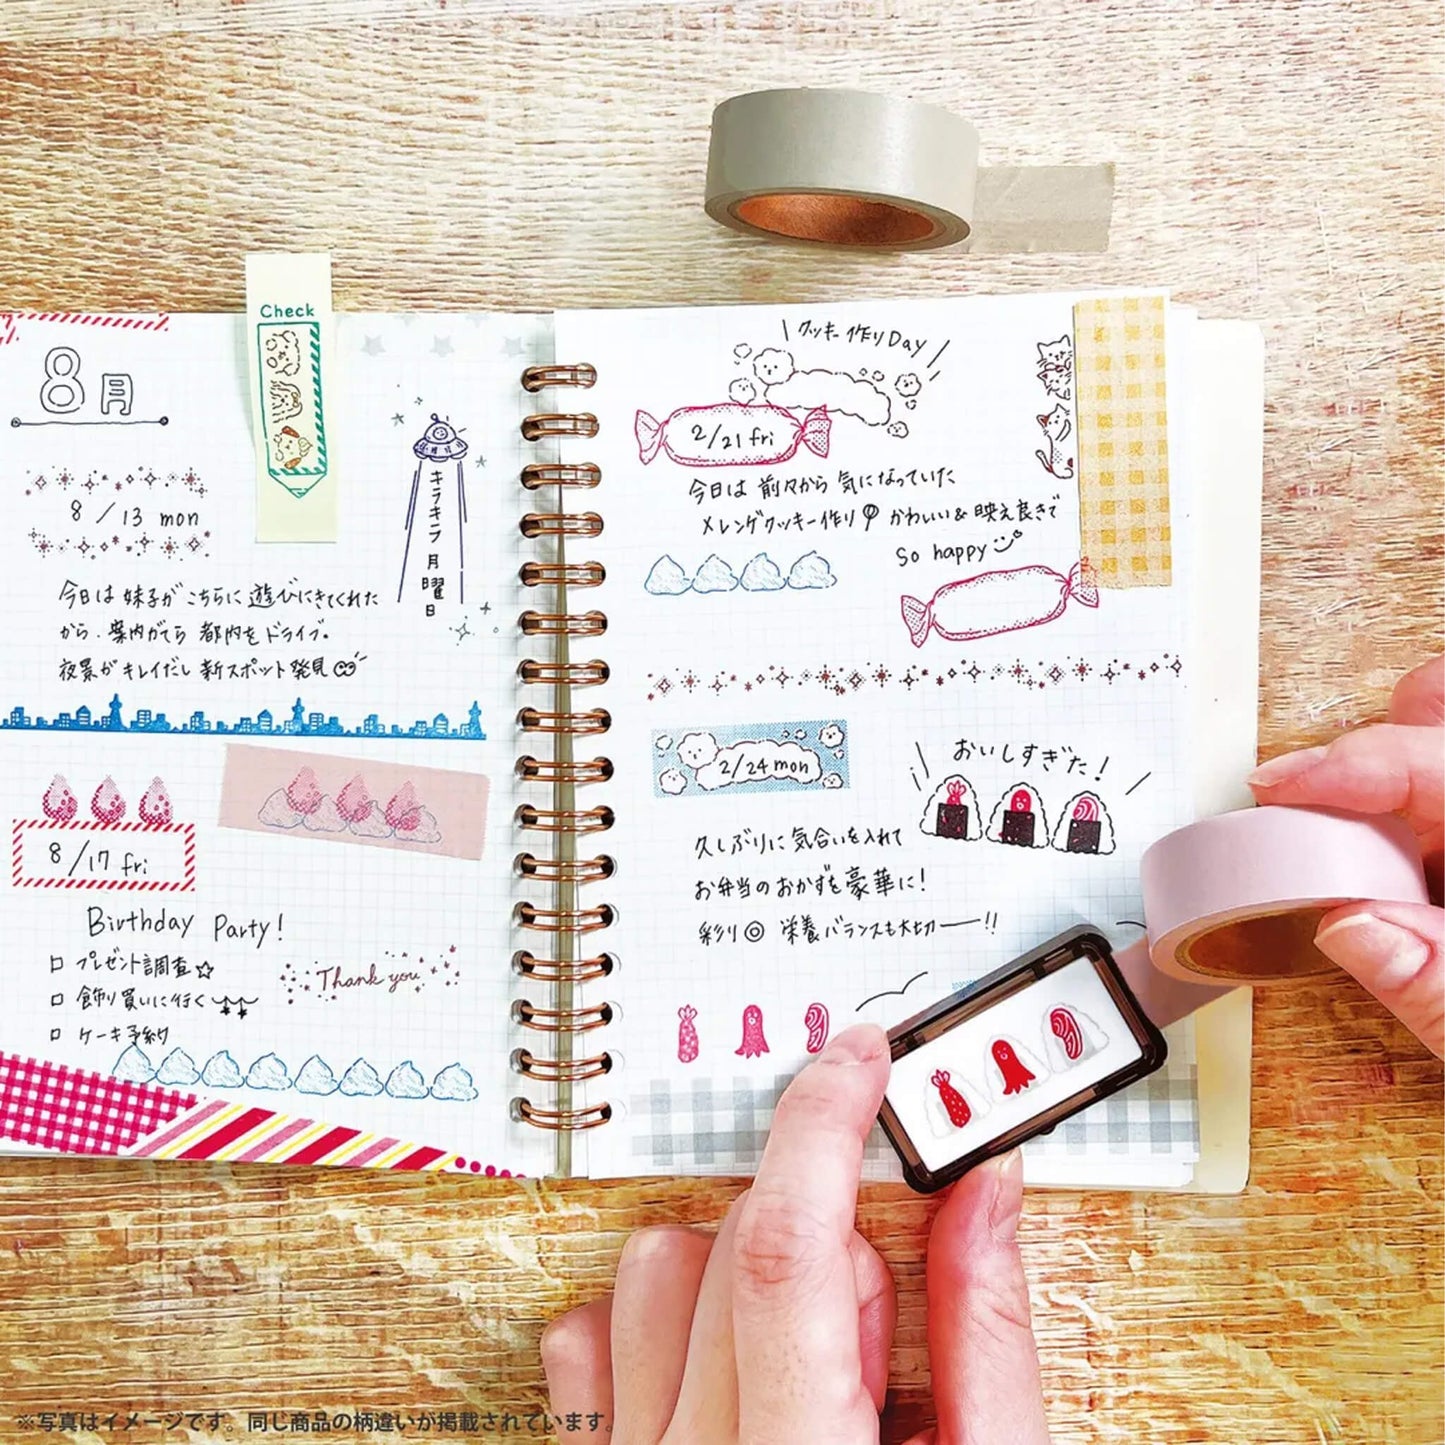 Check
8月
8/13 mon
キラキラ月曜日
今日は妹子がこちらに遊びにきてくれた
から、案内がてら都内をドライブ。
夜景がキレイだし新スポット発見
8/17 fri
Birthday Party!
□ プレゼント調査☆
□ 飾り買いに行く
□ ケーキ予約
Thank you
クッキー作りDay
2/21 fri
今日は前々から気になっていた
メレンゲクッキー作り かわいい&映え良きで
So happy
2/24 mon
おいしすぎた!
久しぶりに気合いを入れて
お弁当のおかずを豪華に!
彩り◎ 栄養バランスも大切ー!!
※写真はイメージです。同じ商品の柄違いが掲載されています。